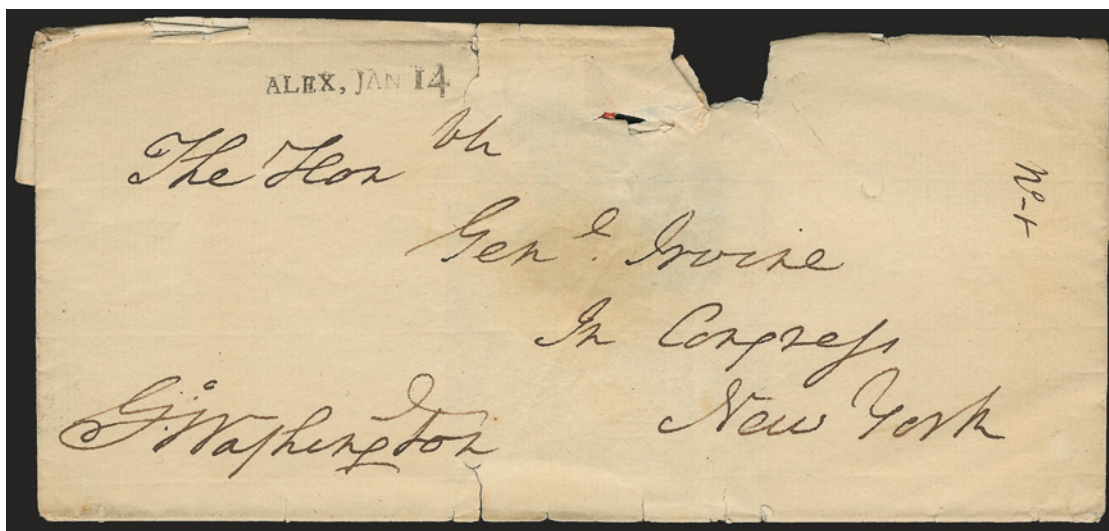 ALEX, JAN 14
The Honble
Genl. Irvine
In Congreſs
New York
Go: Waſhington
No-1